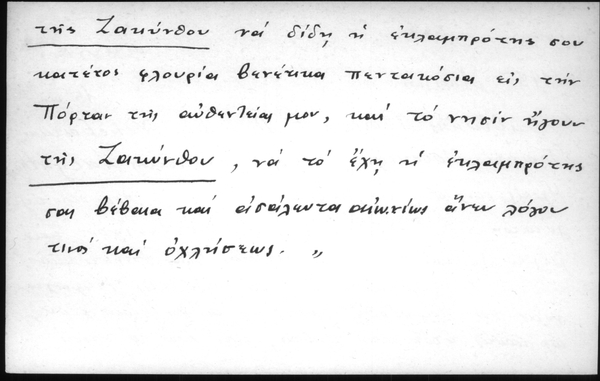 τῆς Ζακύνθου νά δίδῃ ἡ ἐκλαμπρότης σου
κατέτος φλουρία βενέτικα πεντακόσια εἰς τήν
Πόρταν τῆς αὐθεντείας μου, καί τό νησίν ἤγουν
τῆς Ζακύνθου, νά τό ἔχῃ ἡ ἐκλαμπρότης
σου βέβαια καί ἀσάλευτα αἰωνίως ἄνευ λόγου
τινός καί ὀχλήσεως. „